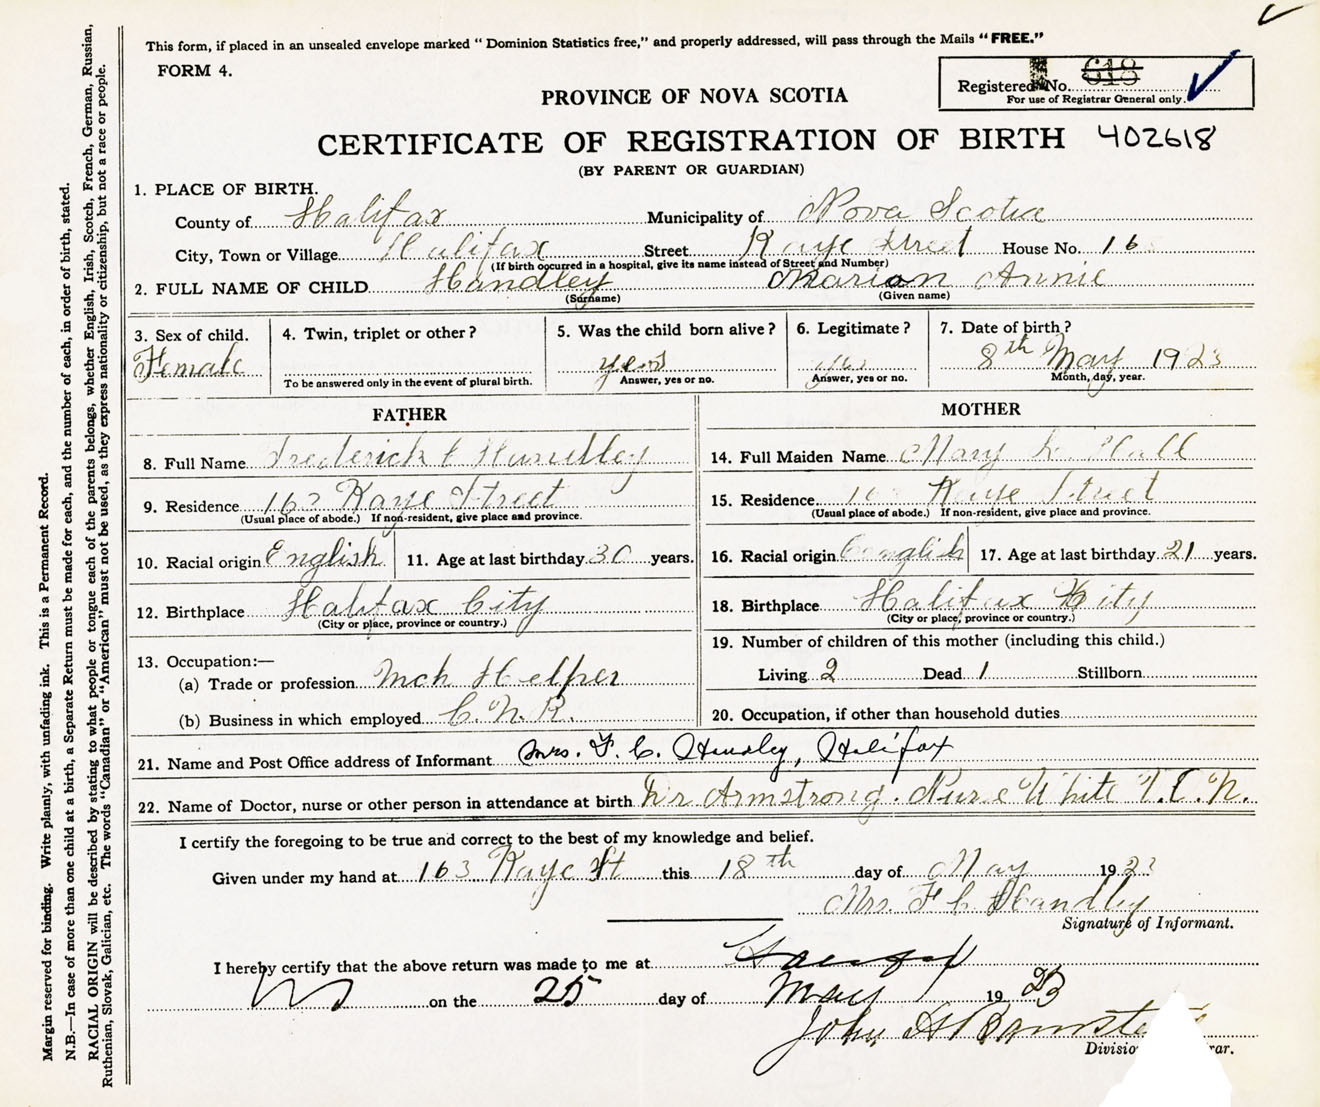 This form, if placed in an unsealed envelope marked "Dominion Statistics free," and properly addressed, will pass through the Mails "FREE."
FORM 4.
Registered No. 618
For use of Registrar General only.
PROVINCE OF NOVA SCOTIA
CERTIFICATE OF REGISTRATION OF BIRTH 402618
(BY PARENT OR GUARDIAN)
1. PLACE OF BIRTH.
County of Halifax Municipality of Nova Scotia
City, Town or Village Halifax Street Kaye Street House No. 16
(If birth occurred in a hospital, give its name instead of Street and Number)
2. FULL NAME OF CHILD Handley Marion Annie
(Surname) (Given name)
3. Sex of child. 4. Twin, triplet or other? 5. Was the child born alive? 6. Legitimate? 7. Date of birth?
Female yes yes 8th May 1923
To be answered only in the event of plural birth. Answer, yes or no. Answer, yes or no. Month, day, year.
FATHER MOTHER
8. Full Name Frederick C Handley 14. Full Maiden Name Mary L. Hall
9. Residence 163 Kaye Street 15. Residence 16 Kaye Street
(Usual place of abode.) If non-resident, give place and province. (Usual place of abode.) If non-resident, give place and province.
10. Racial origin English 11. Age at last birthday 30 years. 16. Racial origin English 17. Age at last birthday 21 years.
12. Birthplace Halifax City 18. Birthplace Halifax City
(City or place, province or country.) (City or place, province or country.)
13. Occupation:— 19. Number of children of this mother (including this child.)
(a) Trade or profession Mch Helper Living 2 Dead 1 Stillborn
(b) Business in which employed C.N.R. 20. Occupation, if other than household duties
21. Name and Post Office address of Informant Mrs. F. C. Handley, Halifax
22. Name of Doctor, nurse or other person in attendance at birth Dr Armstrong. Nurse White V.O.N.
I certify the foregoing to be true and correct to the best of my knowledge and belief.
Given under my hand at 163 Kaye St this 18th day of May 1923
Mrs. F C Handley
Signature of Informant.
I hereby certify that the above return was made to me at Halifax
NS on the 25 day of May 1923
John A
Divisio rar.
Margin reserved for binding. Write plainly, with unfading ink. This is a Permanent Record.
N.B.—In case of more than one child at a birth, a Separate Return must be made for each, and the number of each, in order of birth, stated.
RACIAL ORIGIN will be described by stating to what people or tongue each of the parents belongs, whether English, Irish, Scotch, French, German, Russian,
Ruthenian, Slovak, Galician, etc. The words "Canadian" or "American" must not be used, as they express nationality or citizenship, but not a race or people.